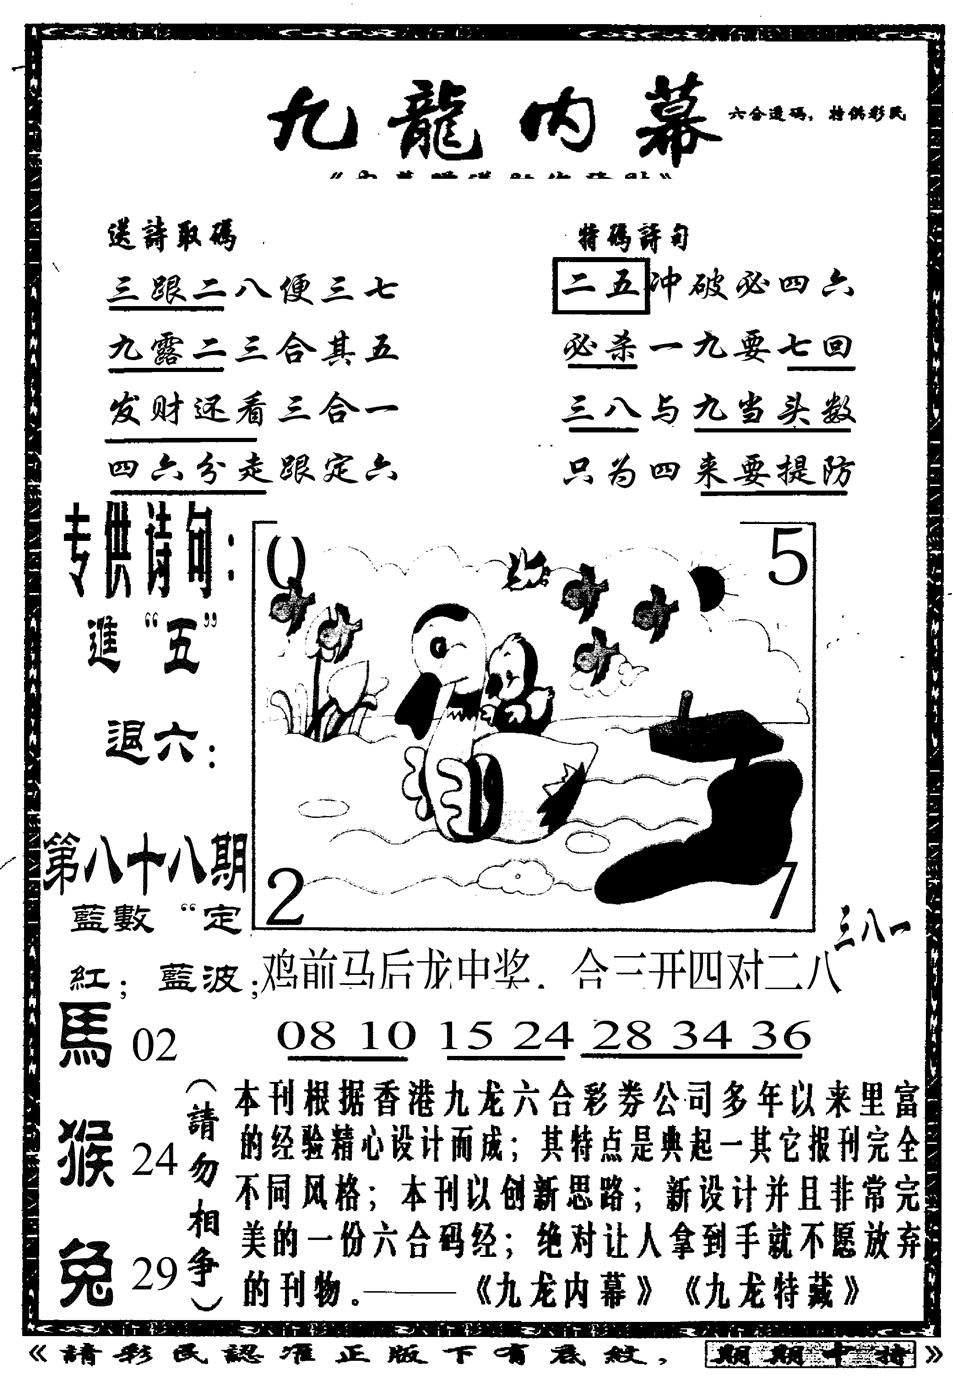 九龍内幕
六合透码，特供彩民
送詩取碼
三跟二八便三七
九露二三合其五
发财还看三合一
四六分走跟定六
特碼詩句
二五冲破必四六
必杀一九要七回
三八与九当头数
只为四来要提防
专供诗句：
進“五”
退六：
第八十八期
藍數“定
紅；藍波；
馬 02
猴 24
兔 29
（請勿相争）
0 5
2 7
三八一
鸡前马后龙中奖．合三开四对二八
08 10 15 24 28 34 36
本刊根据香港九龙六合彩券公司多年以来里富
的经验精心设计而成；其特点是典起一其它报刊完全
不同风格；本刊以创新思路；新设计并且非常完
美的一份六合码经；绝对让人拿到手就不愿放弃
的刊物。——《九龙内幕》《九龙特藏》
《請彩民認准正版下有底紋，期期中特》